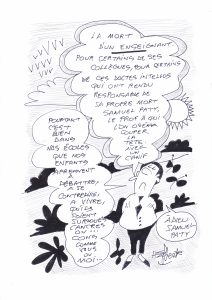 LA MORT
D'UN ENSEIGNANT
POUR CERTAINS DE SES
COLLÈGUES, POUR CERTAINS
DE CES DOCTES INTELLOS
QUI ONT RENDU
RESPONSABLE DE
SA PROPRE MORT
SAMUEL PATY,
LE PROF À QUI
L'ON OSERA
COUPER
LA TÊTE
AVEC
UN CANIF
POURTANT
C'EST
BIEN
DANS
NOS ÉCOLES
QUE NOS
ENFANTS
APPRENNENT
À
DÉBATTRE,
À SE
CONTREDIRE,
À VIVRE,
QU'ILS
SOIENT
SURDOUÉS
CANCRES
OU
CONS
COMME
VOUS
OU
MOI...
ADIEU
SAMUEL
PATY